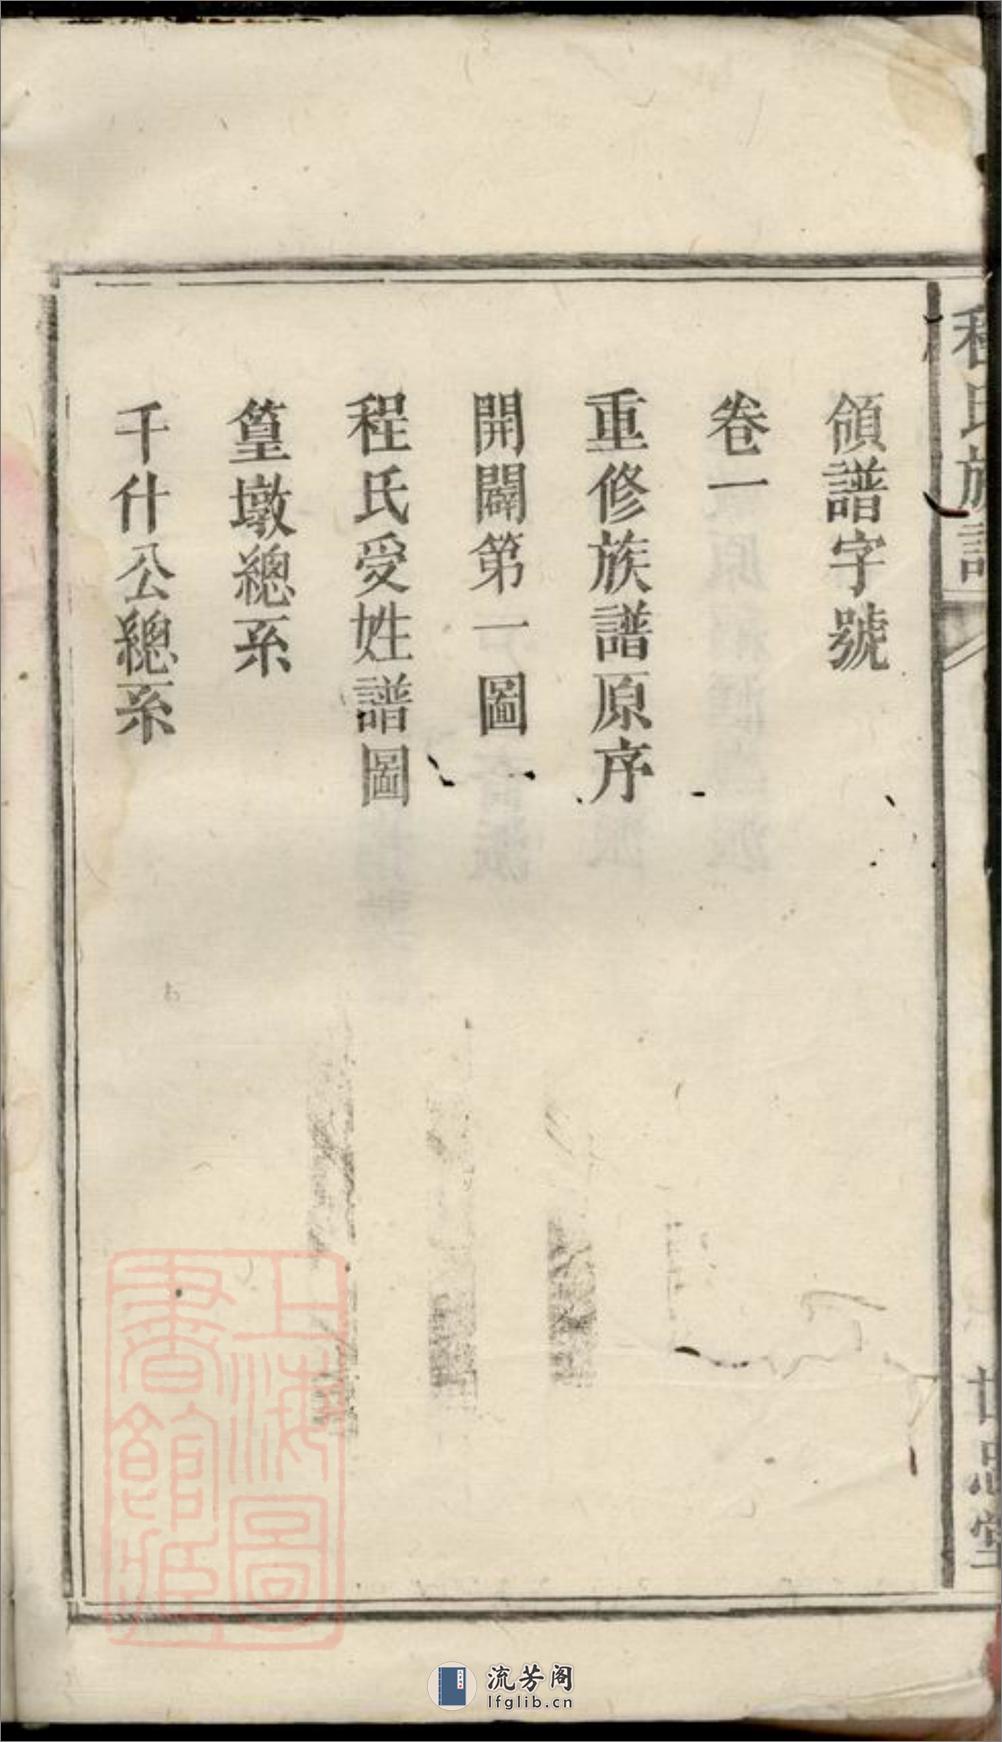 程氏族譜
世思堂
領譜字號
卷一
重修族譜原序
開闢第一圖
程氏受姓譜圖
篁墩總系
千什公總系
上海圖
書館藏
流芳阁
lfglib.cn